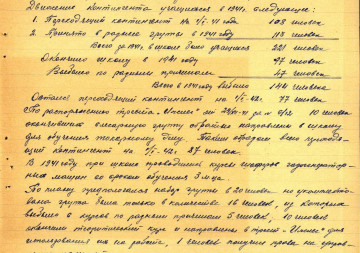 Движение контингента учащихся в 1941г. следующее:
1. Переходящий контингент на 1/I-41 года 108 человек
2. Принято в разные группы в 1941 году 113 человек
Всего за 1941 в школе было учащихся 221 человек
Окончило школу в 1941 году 97 человек
Выбыло по разным причинам 47 человек
Всего в 1941 году выбыло 144 человек
Остался переходящий контингент на 1/I-42г. 77 человек
По распоряжению треста за № 10 человек
окончивших слесарную группу обратно направлены в школу
для обучения токарному делу. Таким образом весь переходящий
контингент на 1/I-42г. 87 человек
В 1941 году при школе проводились курсы шоферов
машин со сроком обучения 3 м-ца
По плану предполагался набор группы в 20 человек но укомплектована
группа была только в количестве 16 человек, из которых
выбыло с курсов по разным причинам 5 человек, 10 человек
окончили теоретический курс и направлены в трест для
использования их на работе, 1 человек получил права на